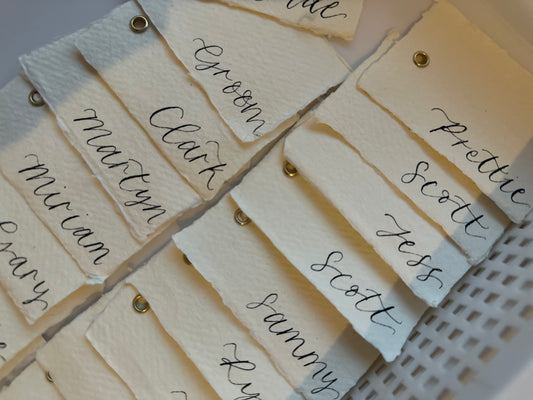 Groom
Clark
Martyn
Miriam
Prettie
Scott
Jess
Scott
Sammy